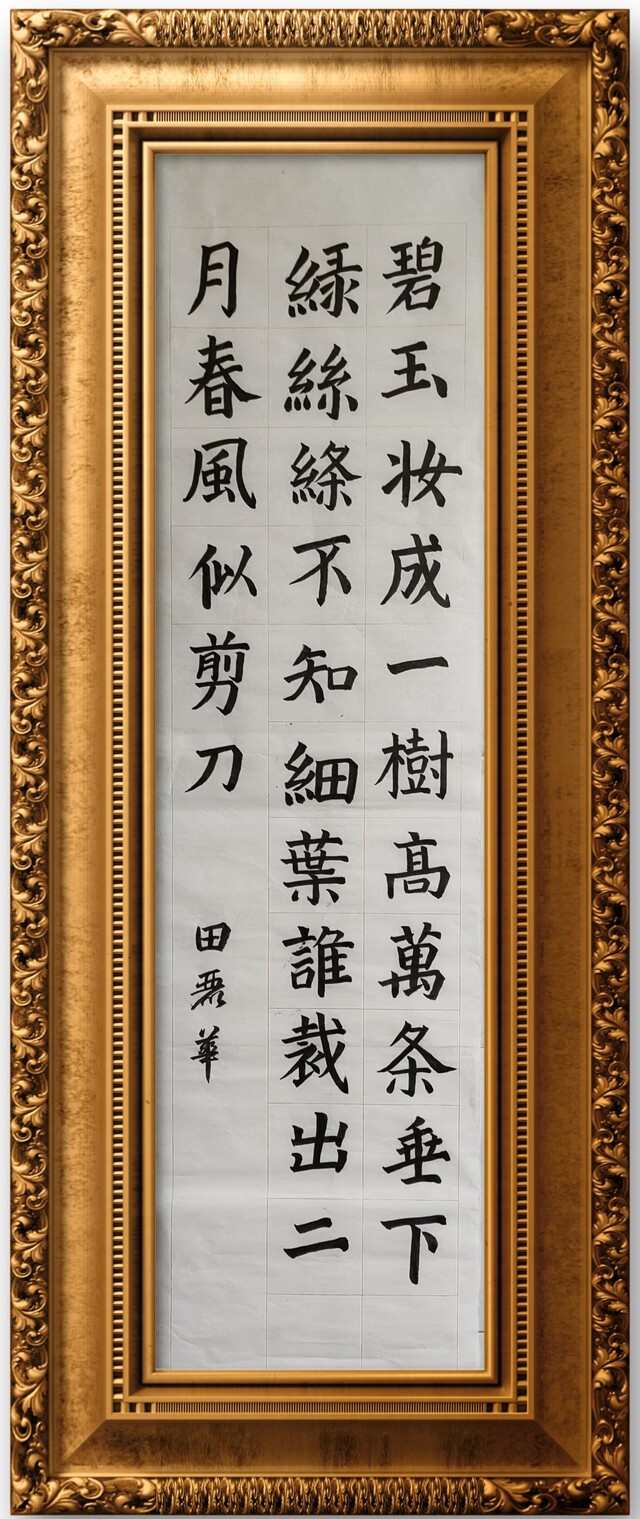 碧玉妆成一樹高萬条垂下
緑絲絛不知細葉誰裁出二
月春風似剪刀
田麗華